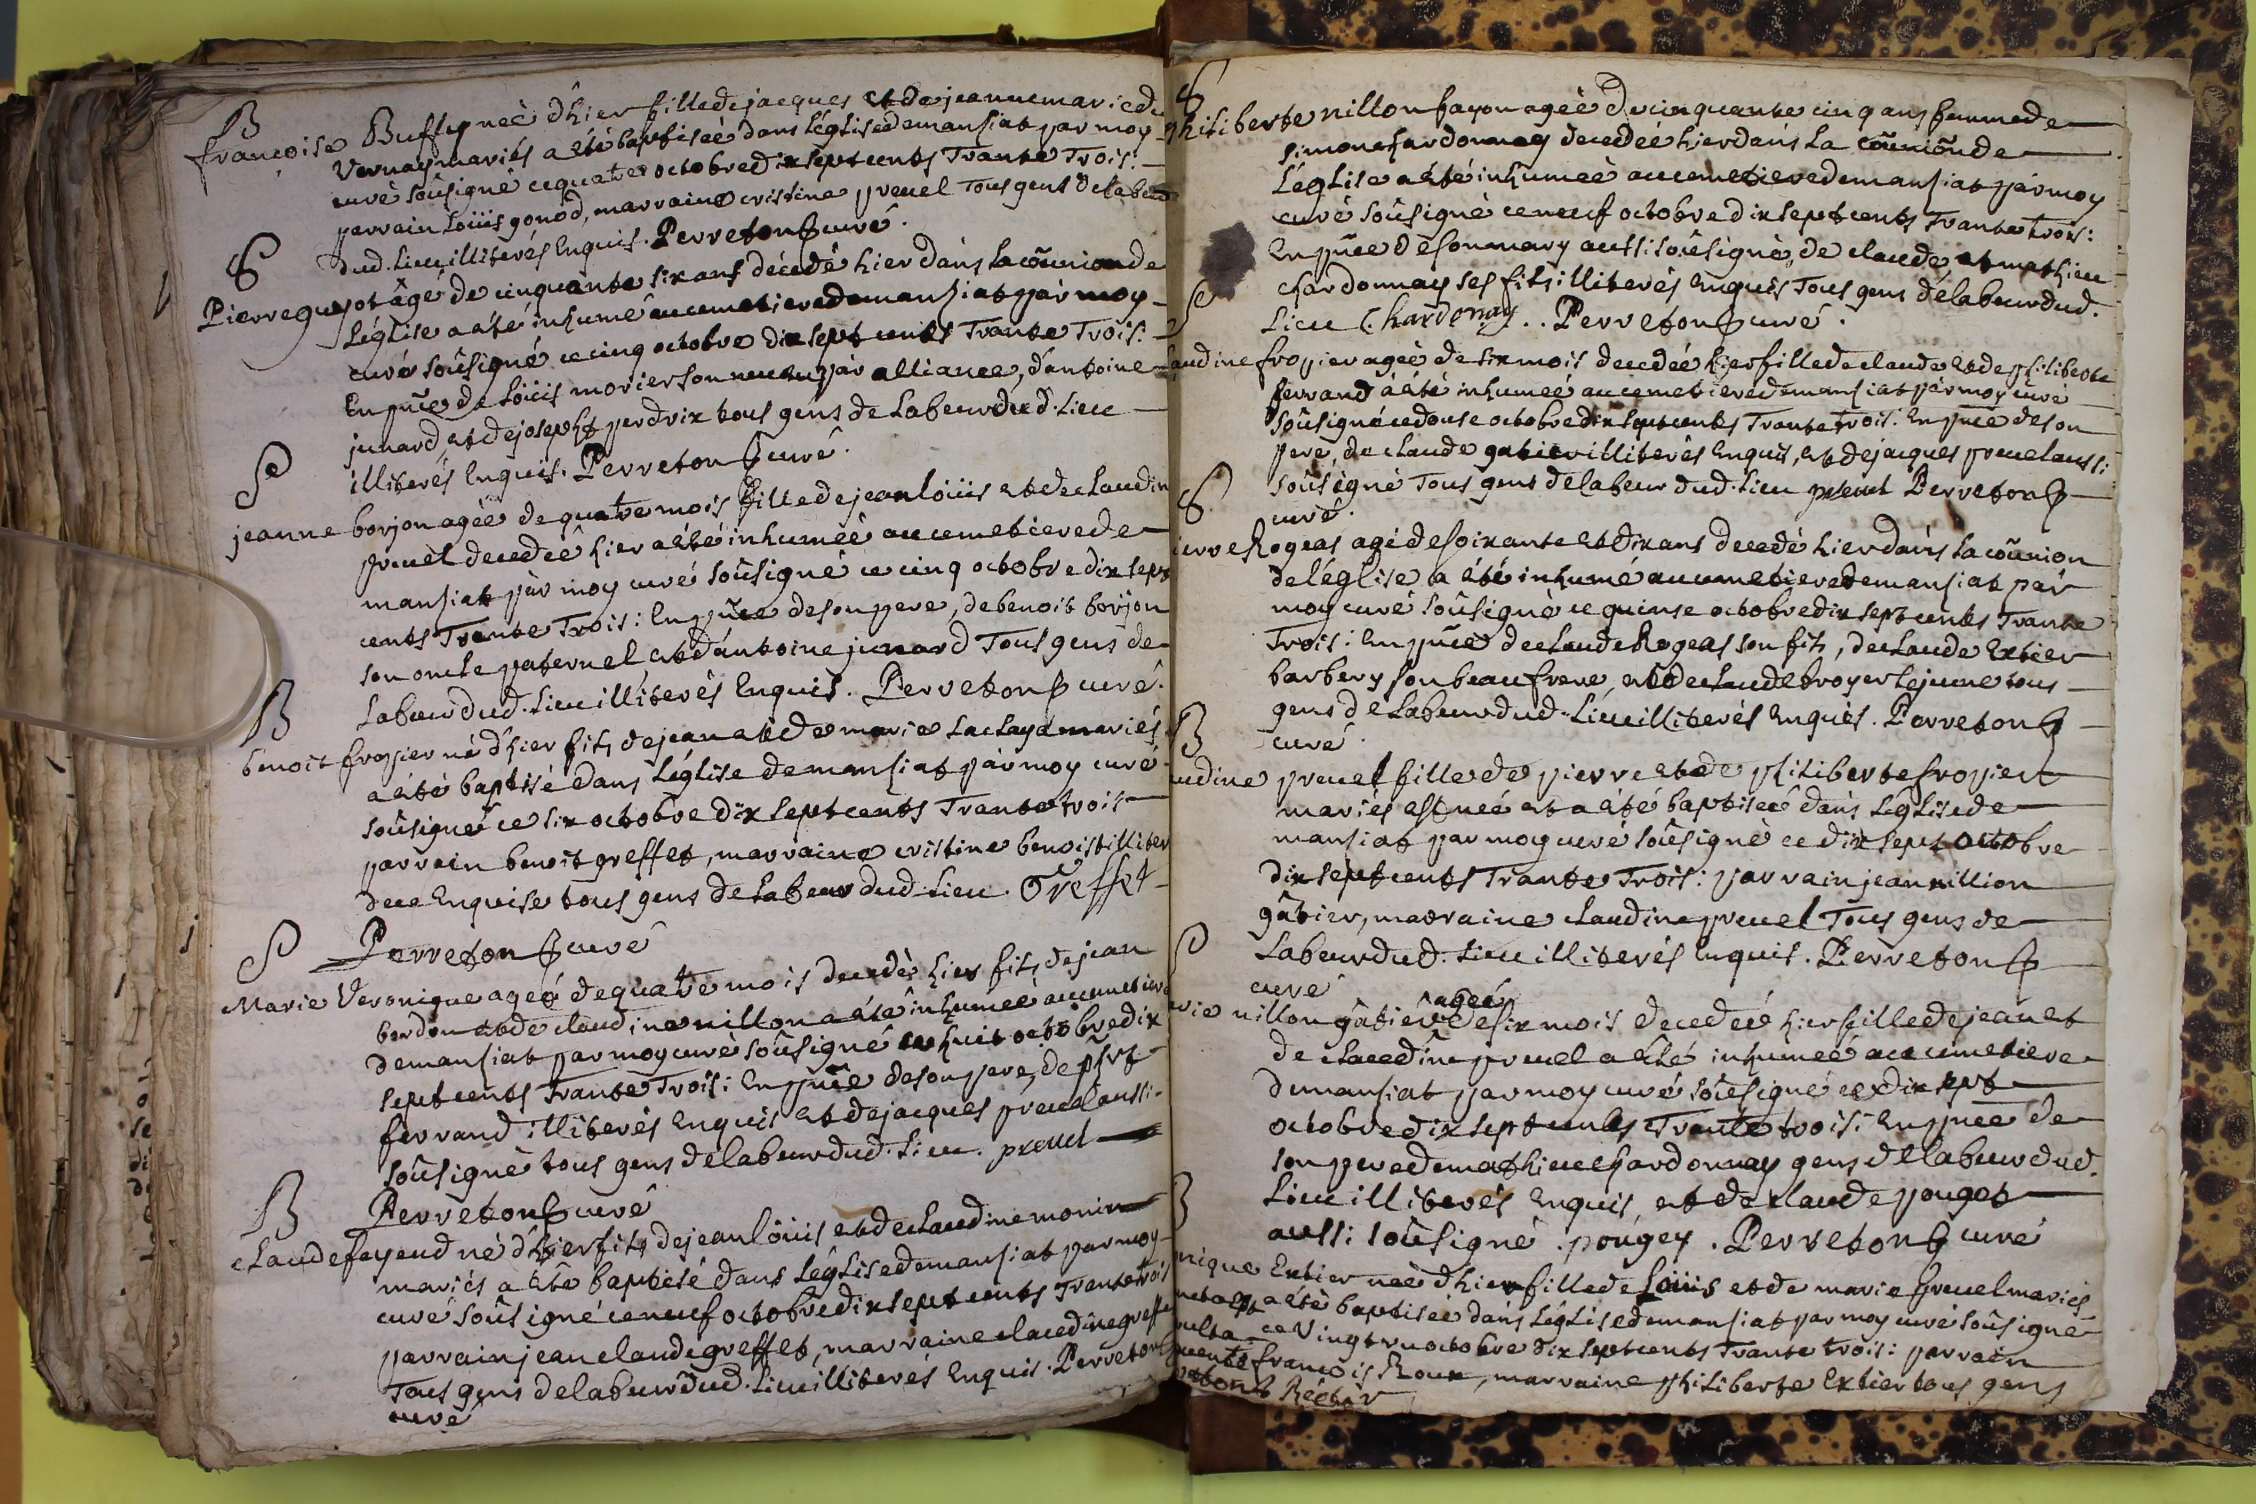 B
francoise Buffy née d'hier fille de jacques et de jeanne marie du
Vernay mariés a été baptisée dans l'églisedemansiat par moy
curé soûsigné ce quatre octobre dix sept cents Trante Trois:
parrain Loüis gonod, marraine cristine prevel Tous gens de labeur
dud. Lieu illiterés Enquis. Perreton curé.
S
Pierre guyot âgé de cinquante six ans décedé hier dans la coūnion de
L'église a été inhumé au cemetiere demansiat pár moy
curé soûsigné ce cinq octobre dix sept cents Trante Trois:
En pñce de Loüis morier son neveu pár alliance, d'antoine
junard, et de joseph perdrix tous gens de Labeur dud. Lieu
illiterés Enquis. Perreton curé.
S
jeanne borjon agée de quatre mois fille de jean loüis et de claudin
prevel decedée hier a été inhumée au cemetiere de
mansiat pár moy curé soûsigné ce cinq octobre dix sept
cents Trante Trois: En pñce de son pere, de benoit borjon
son oncle paternel, et d'antoine junard Tous gens de
Labeur dud. Lieu illiterés Enquis. Perreton curé.
B
benoit fropier né d'hier fils de jean et de marie Laclaya mariés
a été baptisé dans L'église de mansiat pár moy curé
soûsigné ce six octobre dix sept cents Trante trois
parrain benoit greffet, marraine cristine benoist illiter
dece Enquise tous gens de Labeur dud. Lieu. Greffet
Perreton curé
S
Marie Veronique ageé de quatre mois decedé hier fils de jean
bordon et de claudine nillon a été inhumeé au cemetiere
demansiat par moy curé soûsigné ce huit octobre dix
sept cents Trante Trois: En pñce de son pere, de
ferrand illiterés Enquis et de jacques prevel aussi
soûsigné tous gens de labeur dud. Lieu. prevel
Perreton curé
B
claude fayend né d'hier fils de jean loüis et de claudine monin
mariés a été baptisé dans L'églisedemansiat par moy
curé soûsigné ce neuf octobre dix sept cents Trante trois
parrain jean claude greffet, marraine claudine greffe
Tous gens de labeur dud. Lieu illiterés Enquis. Perreton
curé
S
philiberte nillon fayon ageè de cinquante cinq ans femme de
simon chardonnay decedeé hier dans La coūniōn de
L'église a été inhumeè au cemetiere demansiat pár moy
curé soûsigné ce neuf octobre dix sept cents Trante trois:
En pñce de son mary aussi soûsigné, de claude et mathieu
chardonnay ses fils illiterés enquis Tous gens de labeur dud.
Lieu C. hardonay.. Perreton curé.
S
audine fropier ageè de six mois decedeé hier fille de claude et de philiberte
ferrand a été inhumeé au cemetiere demansiat pár moy curé
soûsigné ce douse octobre dix sept cents Trante trois: En pñce de son
pere, de claude gatier illiterés Enquis, et de jacques prevel aussi
soûsigné Tous gens de labeur dud. Lieu prevel Perreton
curé.
S
ierre Rogeas agé de soixante et dix ans decedé hier dans La coūnion
de L'église a été inhumé au cemetiere demansiat pár
moy curé soûsigné ce quinse octobre dix sept cents Trante
Trois: En pñce de claude Rogeas son fils, de claude Extier
barbery son beaufrere, et de claude broyer Lejeune tous
gens de labeur dud. Lieu illiterés Enquis. Perreton
curé.
B
audine prevel fille de pierre et de philiberte fropier
mariés est neé et a été baptiseé dans L'église de
mansiat par moy curé soûsigné ce dix sept octobre
dix sept cents Trante Trois: parrain jean nillion
gâtier, marraine claudine prevel Tous gens de
Labeur dud. Lieu illiterés Enquis. Perreton
curé
S
arie nillon gâtier ageé de six mois decedeé hier fille de jean et
de claudine prevel a été inhumeé au cemetiere
demansiat par moy curé soûsigné ce dix sept
octobre dix sept cents Trante trois: En pñce de
son pere de mathieu chardonnay gens de labeur dud.
Lieu illiterés Enquis, et de claude pouget
aussi soûsigné. pougey. Perreton curé
B
nique Extier neé d'hier fille de Loüis et de marie prevel mariés
a été baptisée dans L'églisedemansiat par moy curé soûsigné
ce Vingt un octobre dix sept cents Trante trois: parrain
francois Roux, marraine philiberte Extier tous gens
Rector